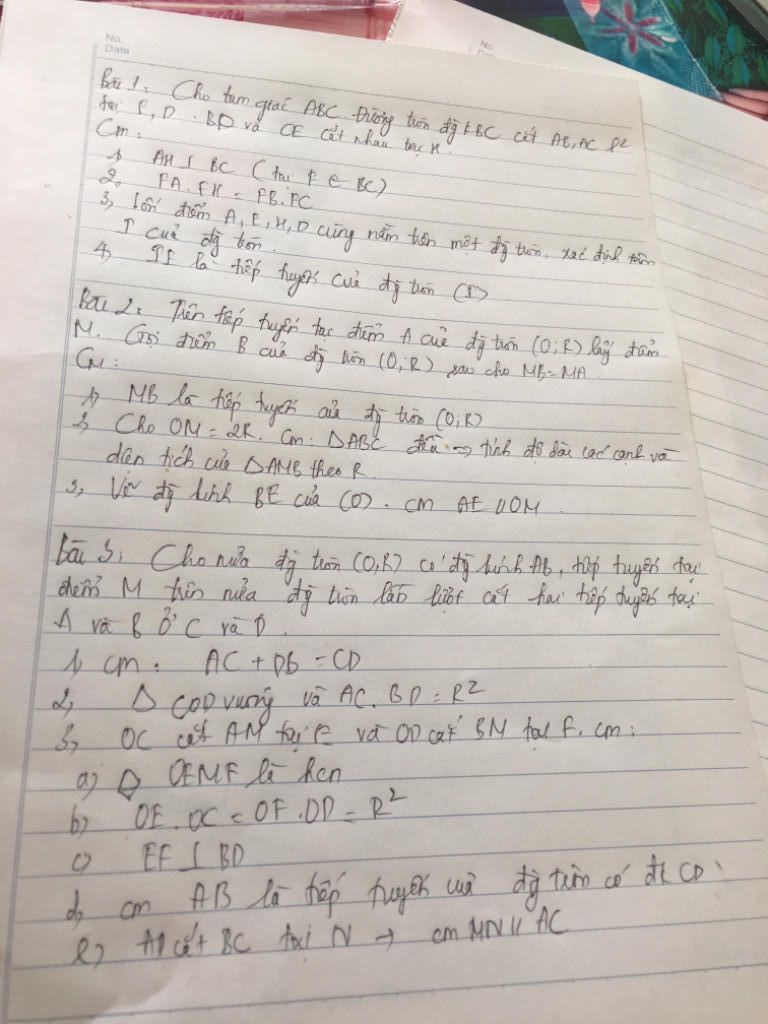 No.
Date
No.
Date
Bài 1, Cho tam giác ABC. Đường tròn đg kBC cắt AB, AC lần
tại E, D. BD và CE cắt nhau tại H.
Cm:
1, AH ⊥ BC (tại F ∈ BC)
2, FA.FH = FB.FC
3, bốn điểm A, E, H, D cùng nằm trên một đg tròn, xác định tâm
I của đg tròn.
4, IE là tiếp tuyến của đg tròn (I)
Bài 2: Trên tiếp tuyến tại điểm A của đg tròn (O;R) lấy điểm
M. Gọi điểm B của đg tròn (O;R) sao cho MB=MA
CM:
1, MB là tiếp tuyến của đg tròn (O;R)
2, Cho OM = 2R. Cm: ΔABC đều → tính độ dài các cạnh và
diện tích của ΔAMB theo R.
3, Vẽ đg kính BE của (O). cm AE // OM.
Bài 3, Cho nửa đg tròn (O,R) có đg kính AB, tiếp tuyến tại
điểm M trên nửa đg tròn lần lượt cắt hai tiếp tuyến tại
A và B ở C và D.
1, cm: AC + DB = CD
2, Δ COD vuông và AC.BD = R²
3, OC cắt AM tại E và OD cắt BM tại F. cm:
a, OEMF là hcn
b, OE.OC = OF.OD = R²
c, EF ⊥ BD
d, cm AB là tiếp tuyến của đg tròn có đk CD
e, AD cắt BC tại N → cm MN // AC